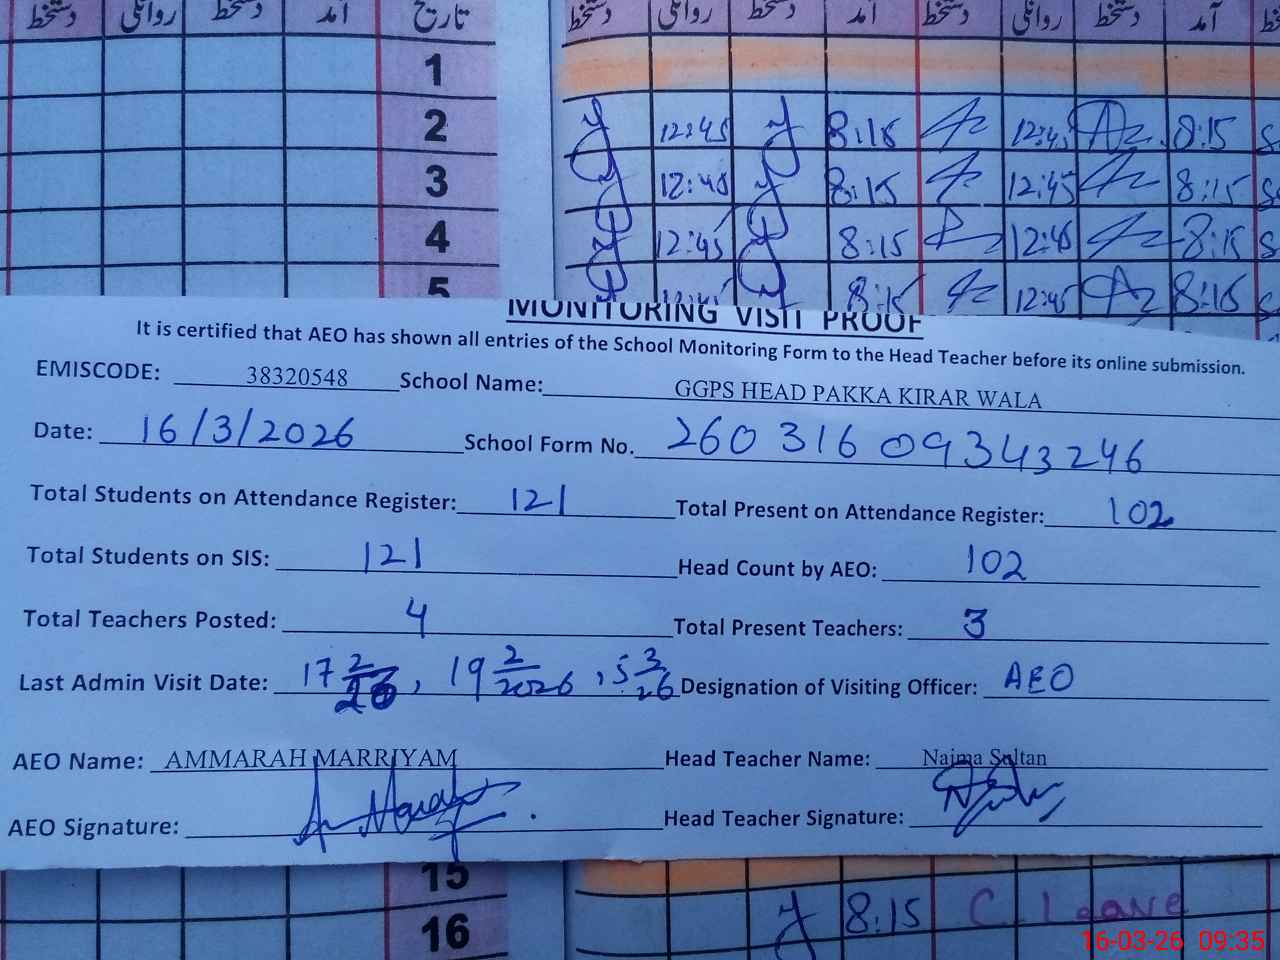 دستخط روانگی دستخط آمد تاریخ
دستخط روانگی دستخط آمد دستخط روانگی دستخط آمد
1
2 12:45 8:15 12:45 8:15
3 12:45 8:15 12:45 8:15
4 12:45 8:15 12:45 8:15
5 8:15 12:45 8:15
MONITORING VISIT PROOF
It is certified that AEO has shown all entries of the School Monitoring Form to the Head Teacher before its online submission.
EMISCODE: 38320548 School Name: GGPS HEAD PAKKA KIRAR WALA
Date: 16/3/2026 School Form No. 260 316 09343246
Total Students on Attendance Register: 121 Total Present on Attendance Register: 102
Total Students on SIS: 121 Head Count by AEO: 102
Total Teachers Posted: 4 Total Present Teachers: 3
Last Admin Visit Date: 17 2/26, 19 2/2026, 5 3/26 Designation of Visiting Officer: AEO
AEO Name: AMMARAH MARRIYAM Head Teacher Name: Najma Sultan
AEO Signature: Head Teacher Signature:
15
16 8:15 C. leave
16-03-26 09:35